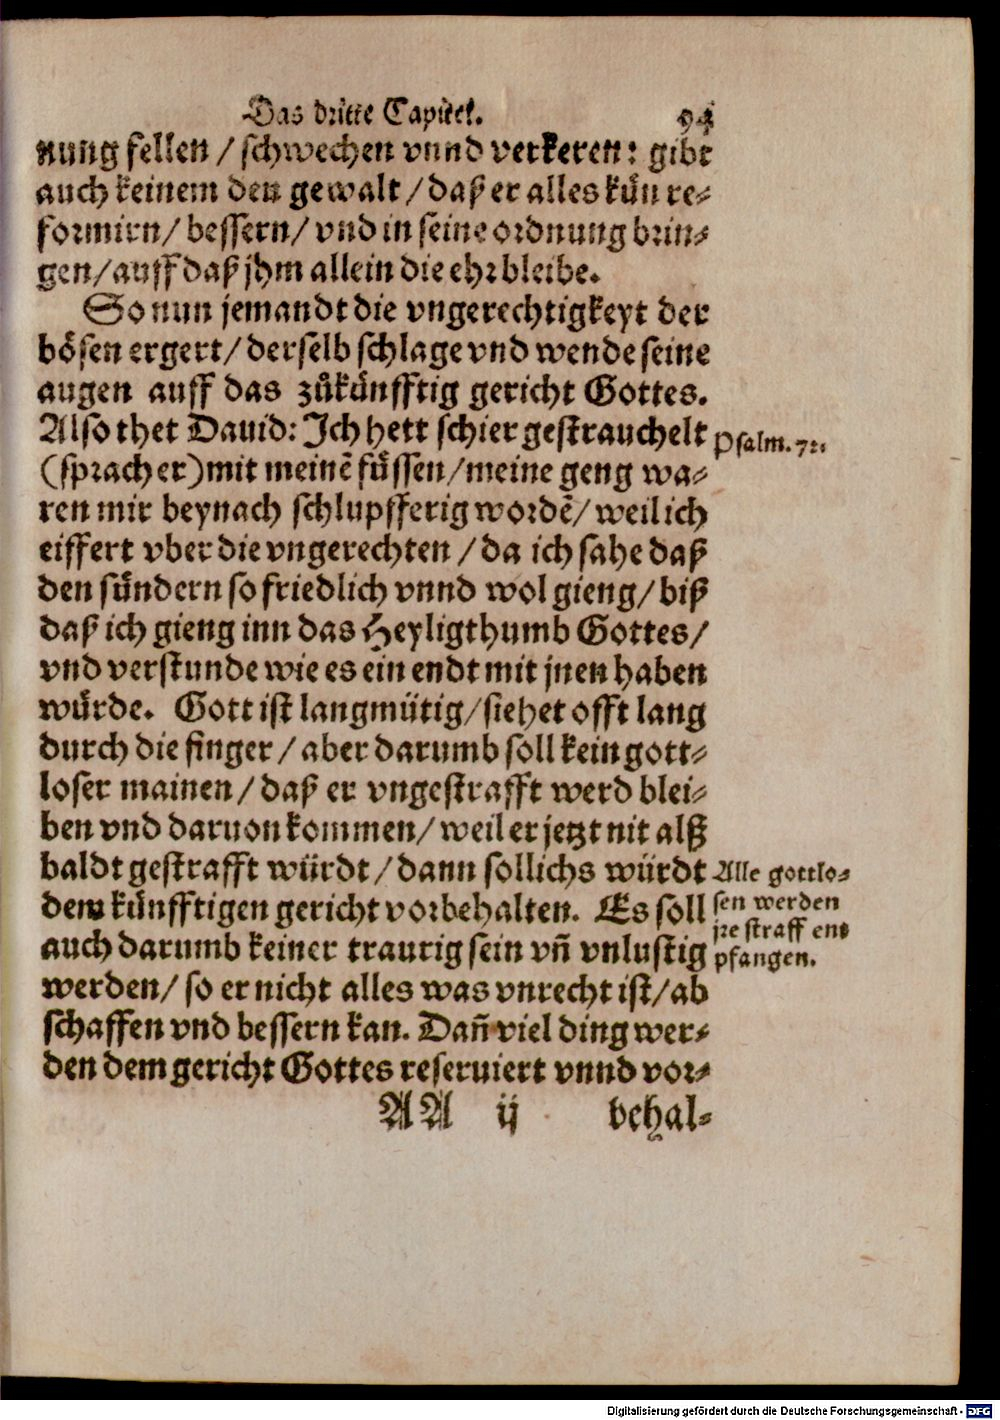 Das dritte Capittel. 94
nung fellen / schwechen vnnd verkeren: gibt
auch keinem den gewalt / daß er alles kün re-
formirn / bessern / vnd in seine ordnung brin-
gen / auff daß jhm allein die ehr bleibe.
So nun jemandt die vngerechtigkeyt der
bösen ergert / derselb schlage vnd wende seine
augen auff das zůkünfftig gericht Gottes.
Also thet Dauid: Ich hett schier gestrauchelt
Psalm. 72.
(sprach er) mit meinē füssen / meine geng wa-
ren mir beynach schlupfferig wordē / weil ich
eiffert vber die vngerechten / da ich sahe daß
den sündern so friedlich vnnd wol gieng / biß
daß ich gieng inn das Heyligthumb Gottes /
vnd verstunde wie es ein endt mit jnen haben
würde. Gott ist langmütig / siehet offt lang
durch die finger / aber darumb soll kein gott-
loser mainen / daß er vngestrafft werd blei-
ben vnd daruon kommen / weil er jetzt nit alß
baldt gestrafft würdt / dann sollichs würdt
dem künfftigen gericht vorbehalten. Es soll
auch darumb keiner traurig sein vñ vnlustig
Alle gottlo-
sen werden
jre straff ent
pfangen.
werden / so er nicht alles was vnrecht ist / ab
schaffen vnd bessern kan. Dañ viel ding wer-
den dem gericht Gottes reseruiert vnnd vor-
AA ij behal-
Digitalisierung gefördert durch die Deutsche Forschungsgemeinschaft - DFG